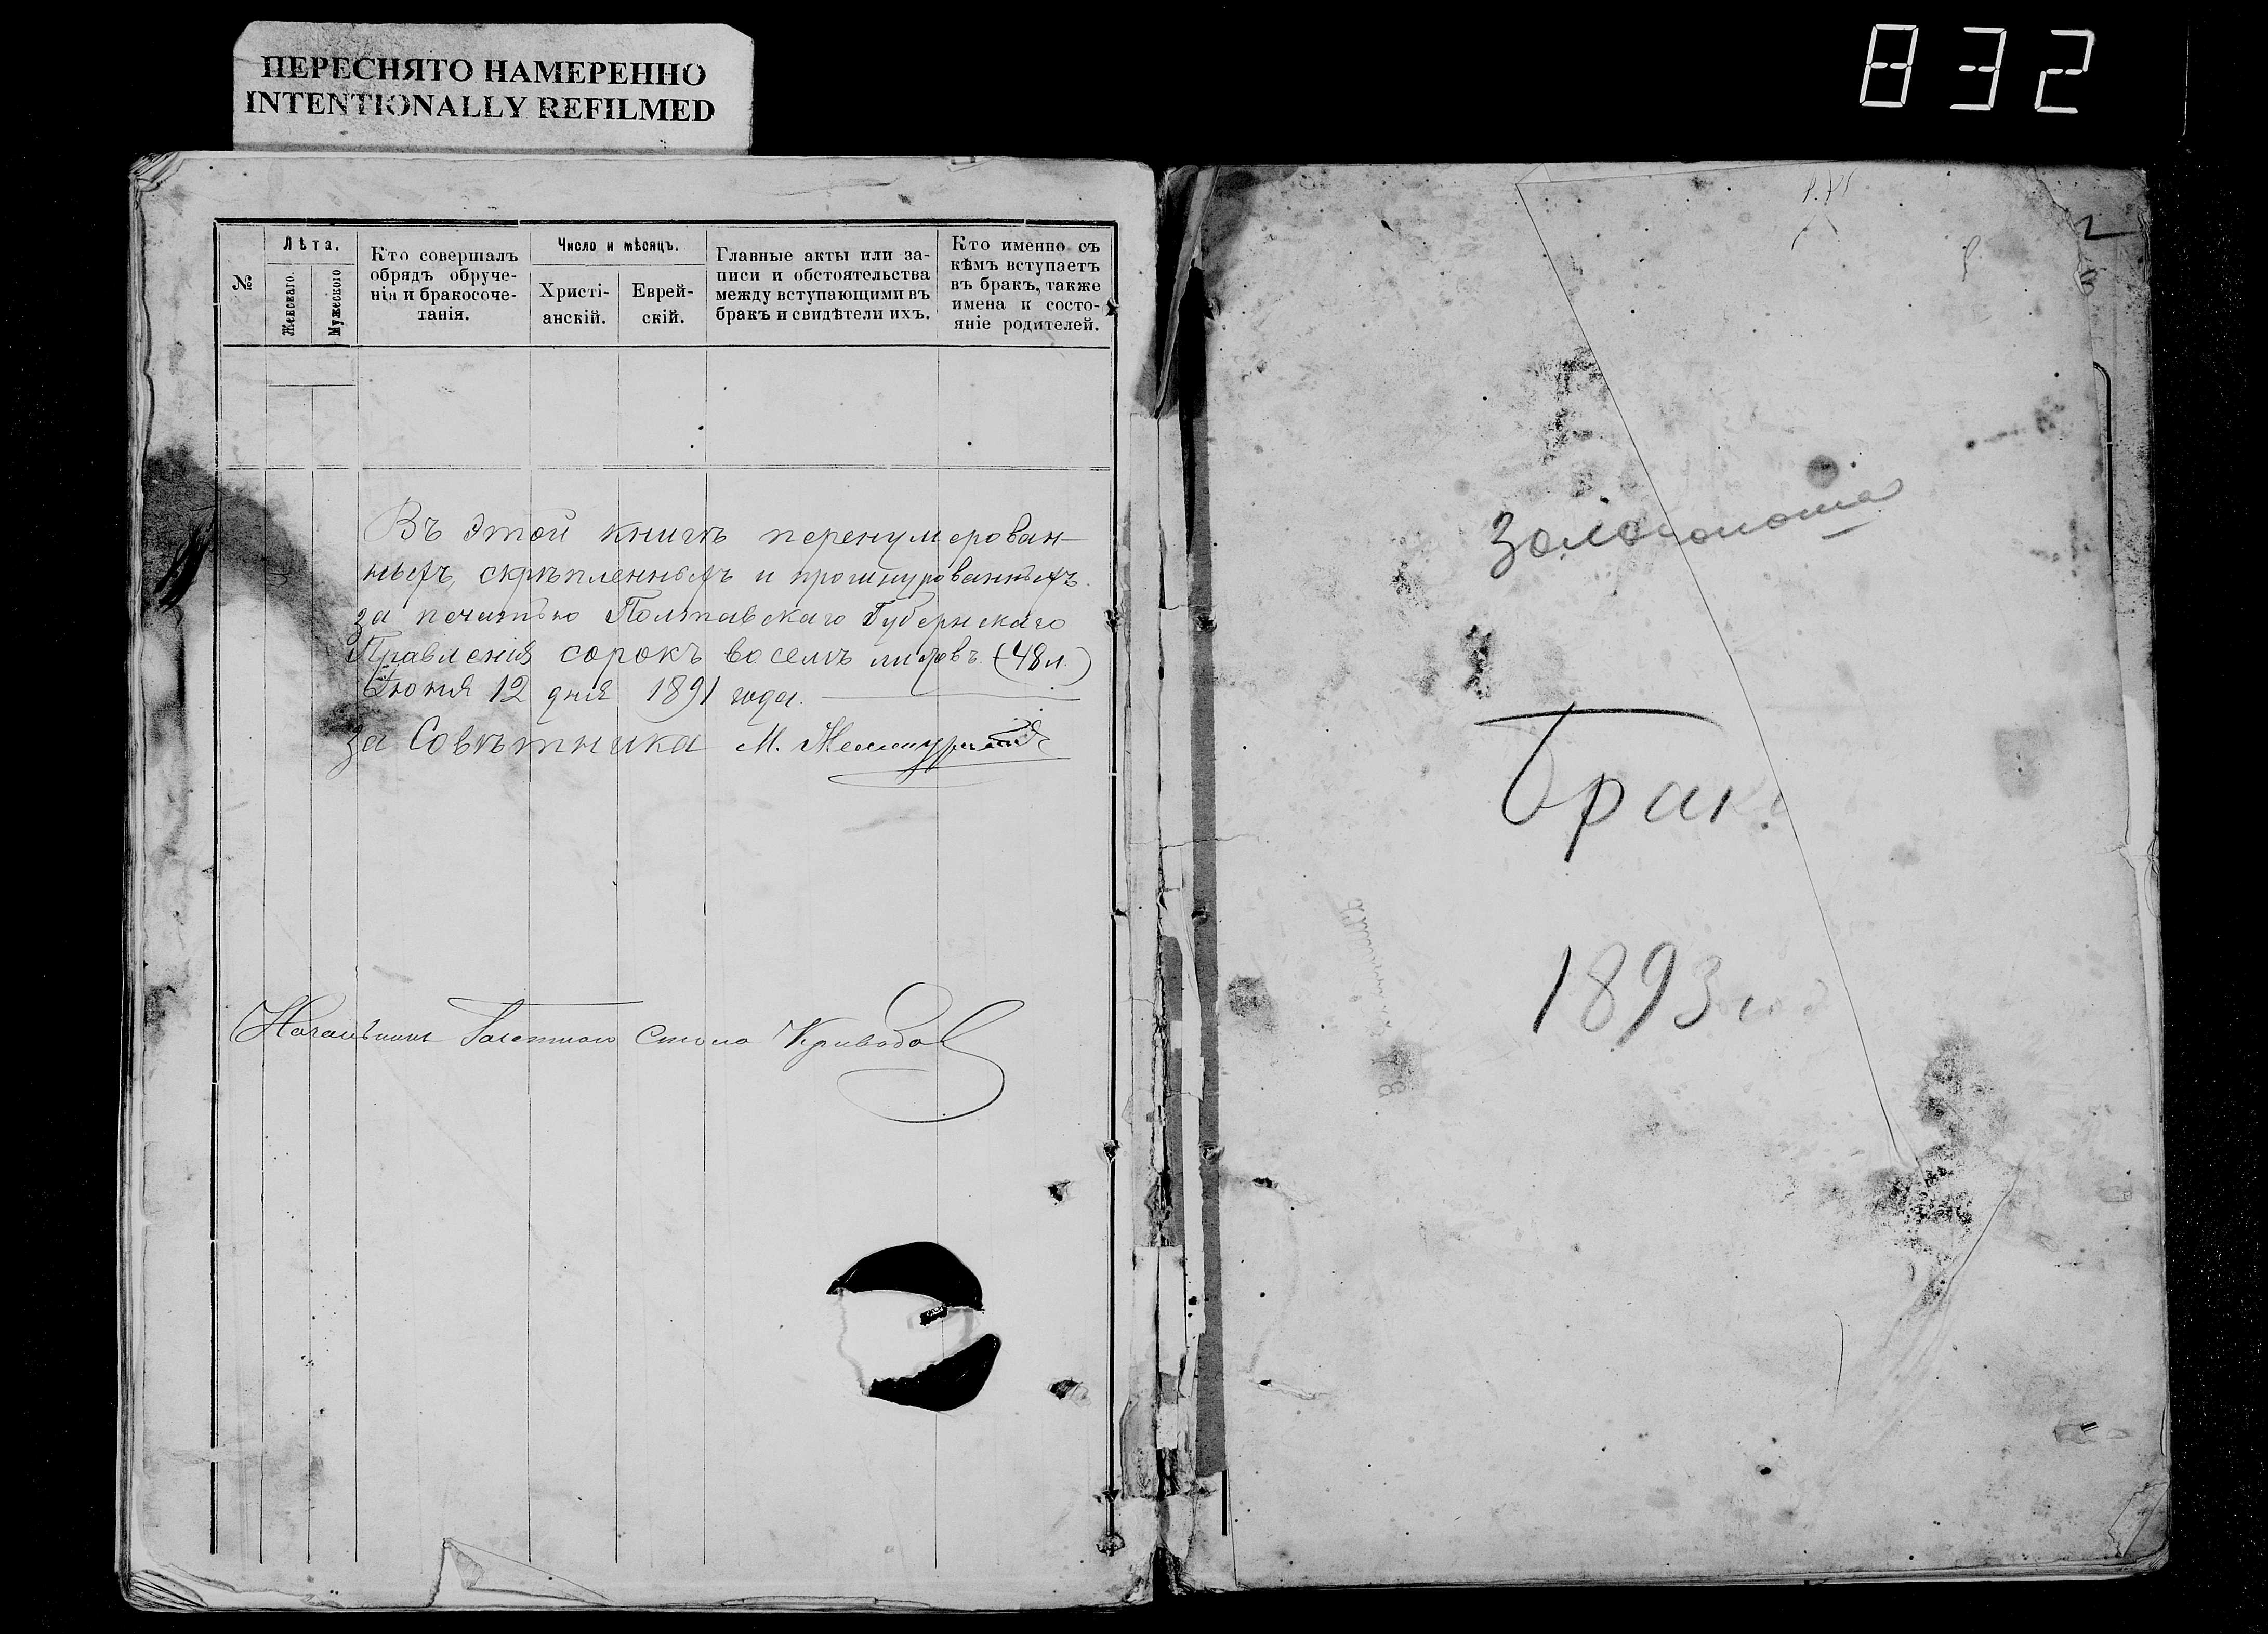 ПЕРЕСНЯТО НАМЕРЕННО
INTENTIONALLY REFILMED
832
№
Лѣта.
Женскаго.
Мужескаго
Кто совершалъ
обрядъ обруче-
нія и бракосоче-
танія.
Число и мѣсяцъ.
Христі-
анскій.
Еврей-
скій.
Главные акты или за-
писи и обстоятельства
между вступающими въ
бракъ и свидѣтели ихъ.
Кто именно съ
кѣмъ вступаетъ
въ бракъ, также
имена и состо-
яніе родителей.
Въ этой книгѣ перенумерован-
ныхъ, скрѣпленныхъ и прошнурованныхъ
за печатью Полтавскаго Губернскаго
Правленія сорокъ восемь листовъ (48 л.)
Іюня 12 дня 1891 года.
За Совѣтника М.
Начальникъ Газетнаго Стола
Золотоноша
Брак
1893 год